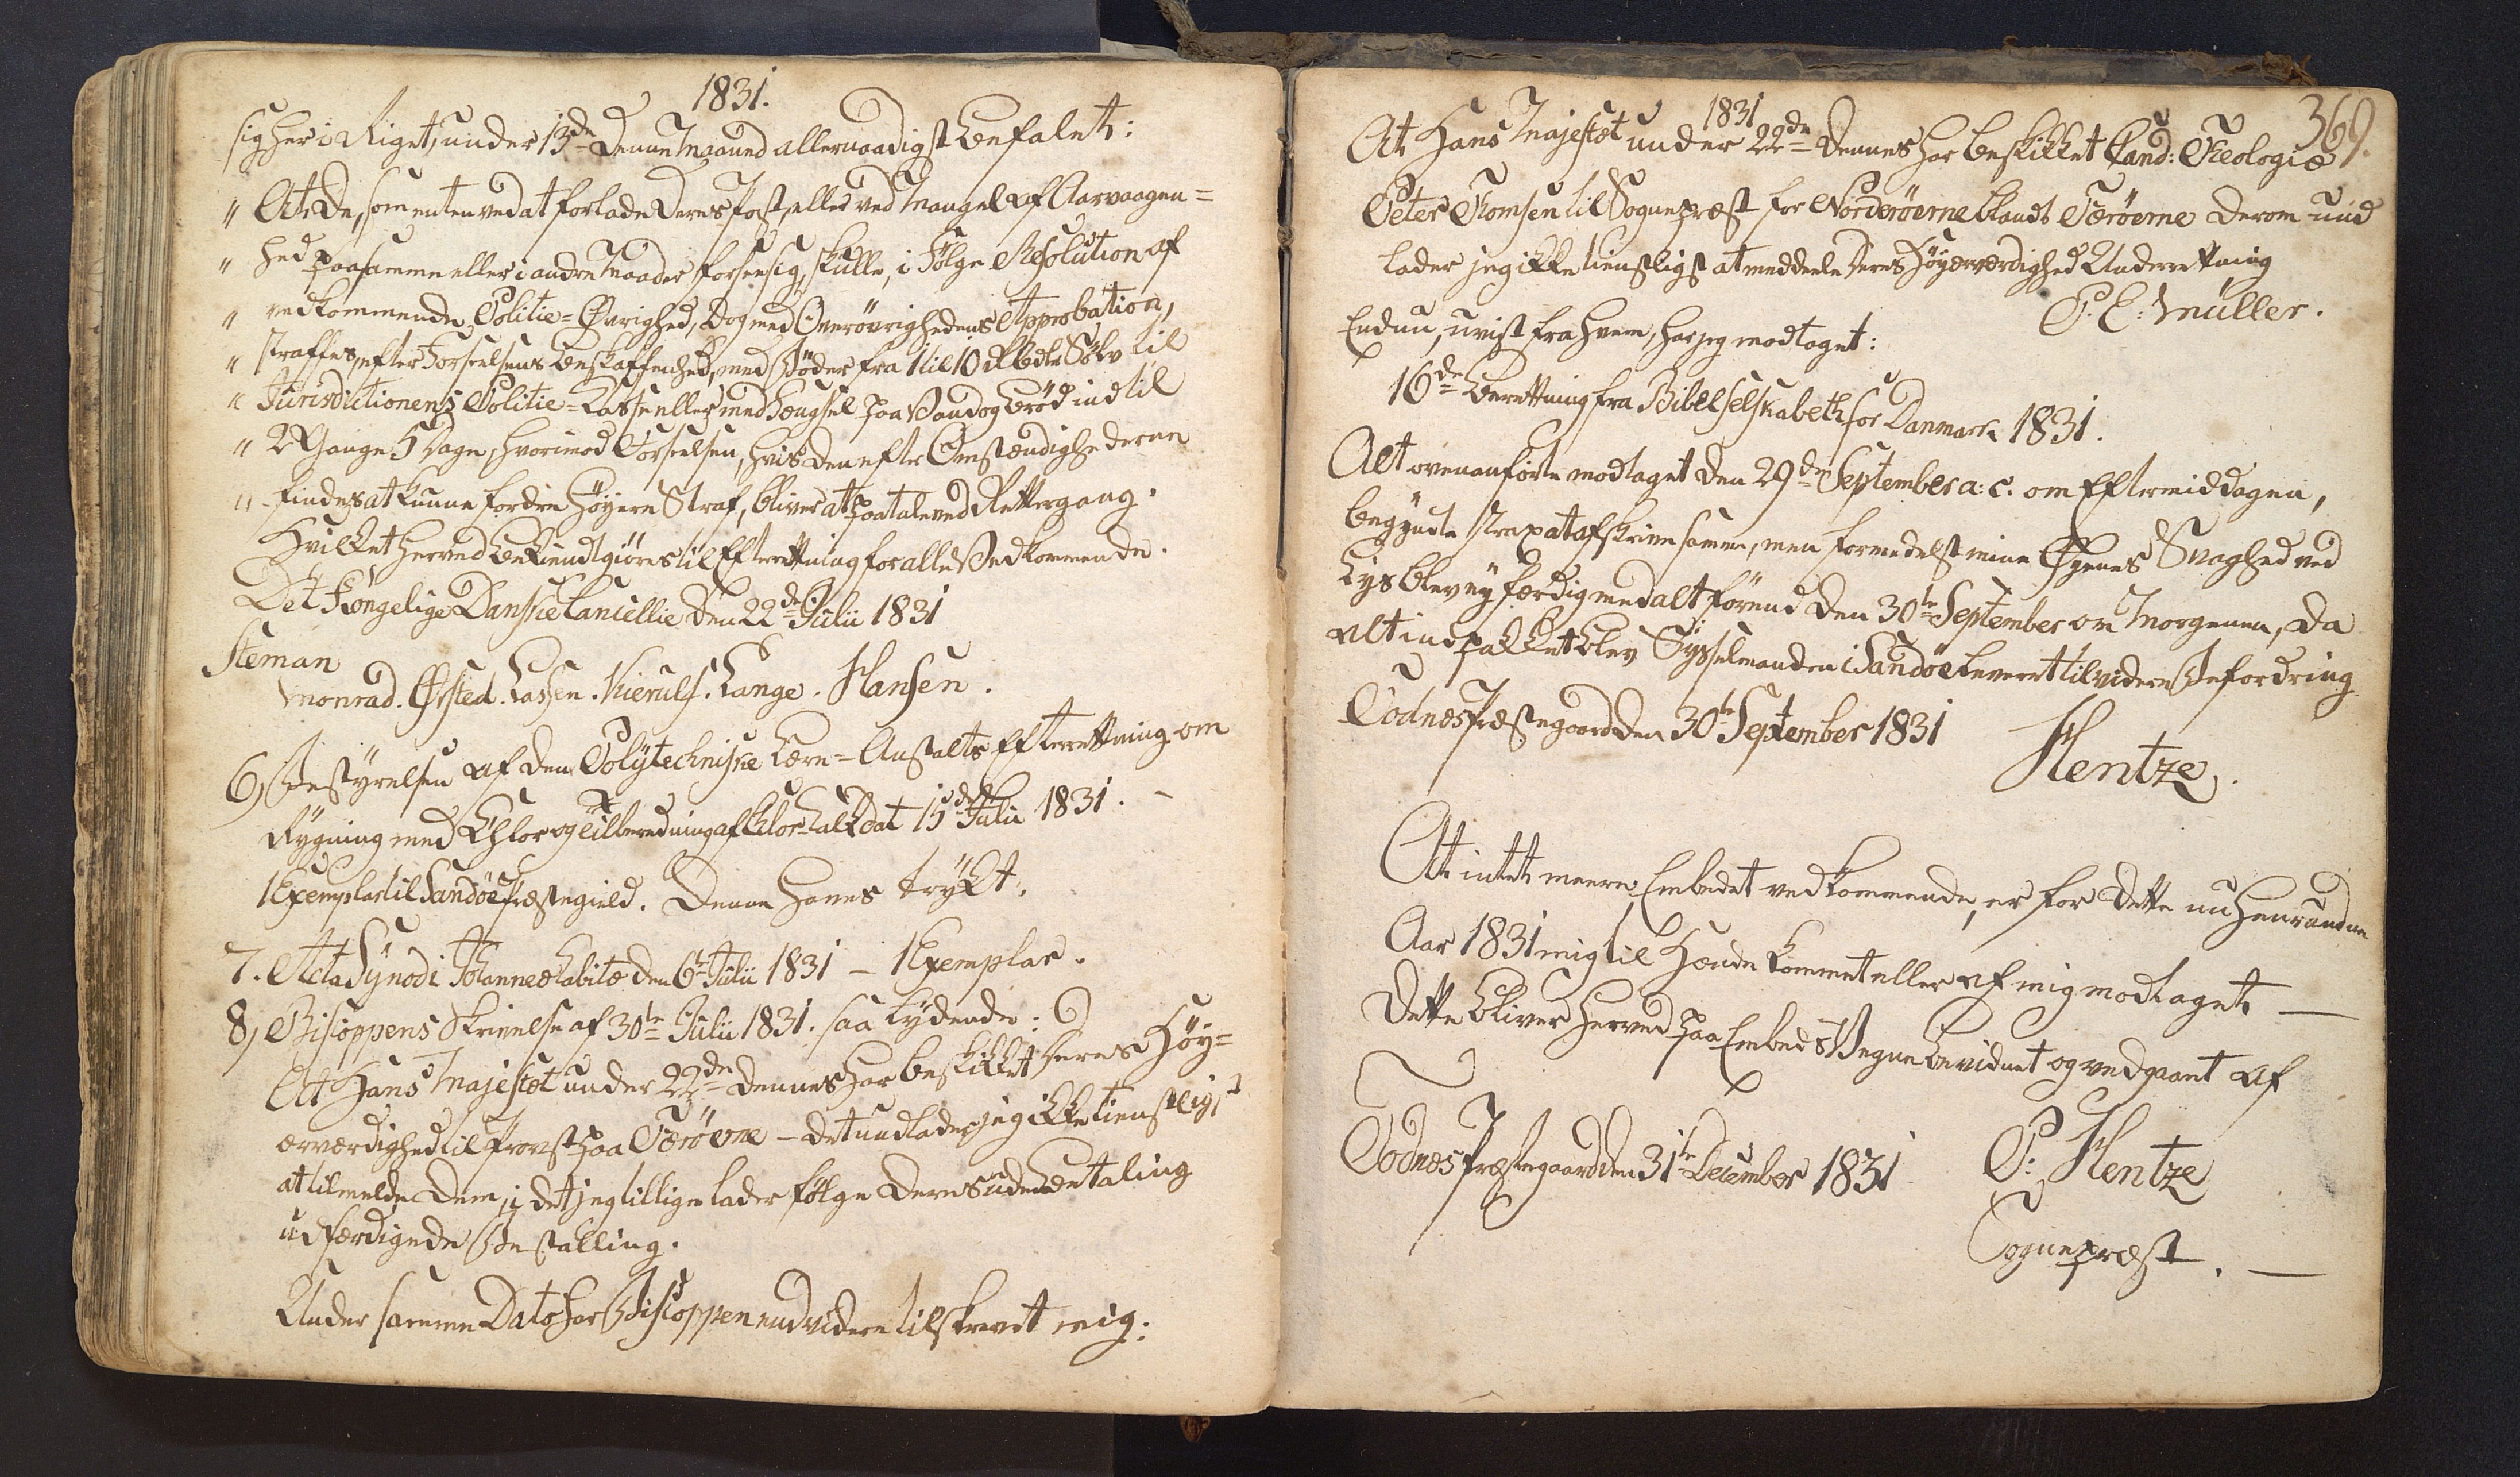 1831.
sig her i Riget, under 13de denne Maaned allernaadigst befalet:
" At De, som enten ved at forlade deres Post, eller ved Mangel af Aarvaagen=
" hed paa samme eller i andre Maader forsee sig, skulle, i Følge Resolution af
" vedkommende Politie=Øvrighed, dog med Overøvrighedens Approbation,
" straffes, efter Forseelsens Beskaffenhed, med Bøder fra 1 til 10 Rbdlr Sølv til
" Jurisdictionens Politie=Casse eller med Fængsel paa Vand og Brød indtil
" 2 Gange 5 Dage, hvorimod Forseelsen, hvis den efter Omstændighederne
" findes at kunne fordre høyere Straf, bliver at paatale ved Rettergang.
Hvilket herved bekiendtgiøres til Efterretning for alle Vedkommende.
Det Kongelige Danske Cancellie den 22de Julii 1831
Steman
Monrad. Ørsted. Lassen. Kierulf. Lange. Hansen.
6, Bestyrelsen af den Polytechniske Lære=Anstalts Efterretning om
Rygning med Chlor og Tilberedning af Chlor-Kalk dat 15de Julii 1831. –
1 Exemplar til Sandøe Præstegield. Denne haves trykt.
7. Acta Synodi Roanneæ habitæ den 6te Julii 1831 – 1 Exemplar.
8, Biskoppens Skrivelse af 30te Julii 1831. saa lydende:
At Hans Majestæt under 22de dennes har beskikket Deres Høy=
ærværdighed til Provst paa Færøerne – det undlader jeg ikke tienstligst
at tilmelde Dem, i det jeg tillige lader følge Deres uden Betaling
udfærdigede Bestalling.
Under samme Dato har Biskoppen endvidere tilskrevet mig:
1831
369.
At Hans Majestæt under 22de dennes har beskikket Cand: Theologiæ
Peter Thomsen til Sognepræst for Norderøerne blandt Færøerne derom und
lader jeg ikke tienstligst at meddeele Deres Høyærværdighed Underretning
P. E. Müller.
Endnu, uvist fra hvem, har jeg modtaget:
16de Beretning fra Bibelselskabet for Danmark 1831.
Alt ovenanførte modtaget den 29de September a: c. om Eftermiddagen,
begyndte strax at afskrive samme, men formedelst mine Øyenes Svaghed ved
Lys blev ey færdig med alt førend den 30te September om Morgenen, da
alt indpakket blev Sysselmanden i Sandøe leveret til videre Befordring
Todnæs Præstegaard den 30te September 1831
Hentze.
At intet meere, Embedet vedkommende, er for dette nu henrundne
Aar 1831 mig til Hænde kommet eller af mig modtaget —
dette bliver herved paa Embeds Vegne bevidnet og vedgaaet af
Todnæs Præstegaard den 31te December 1831
P: Hentze
Sognepræst. —